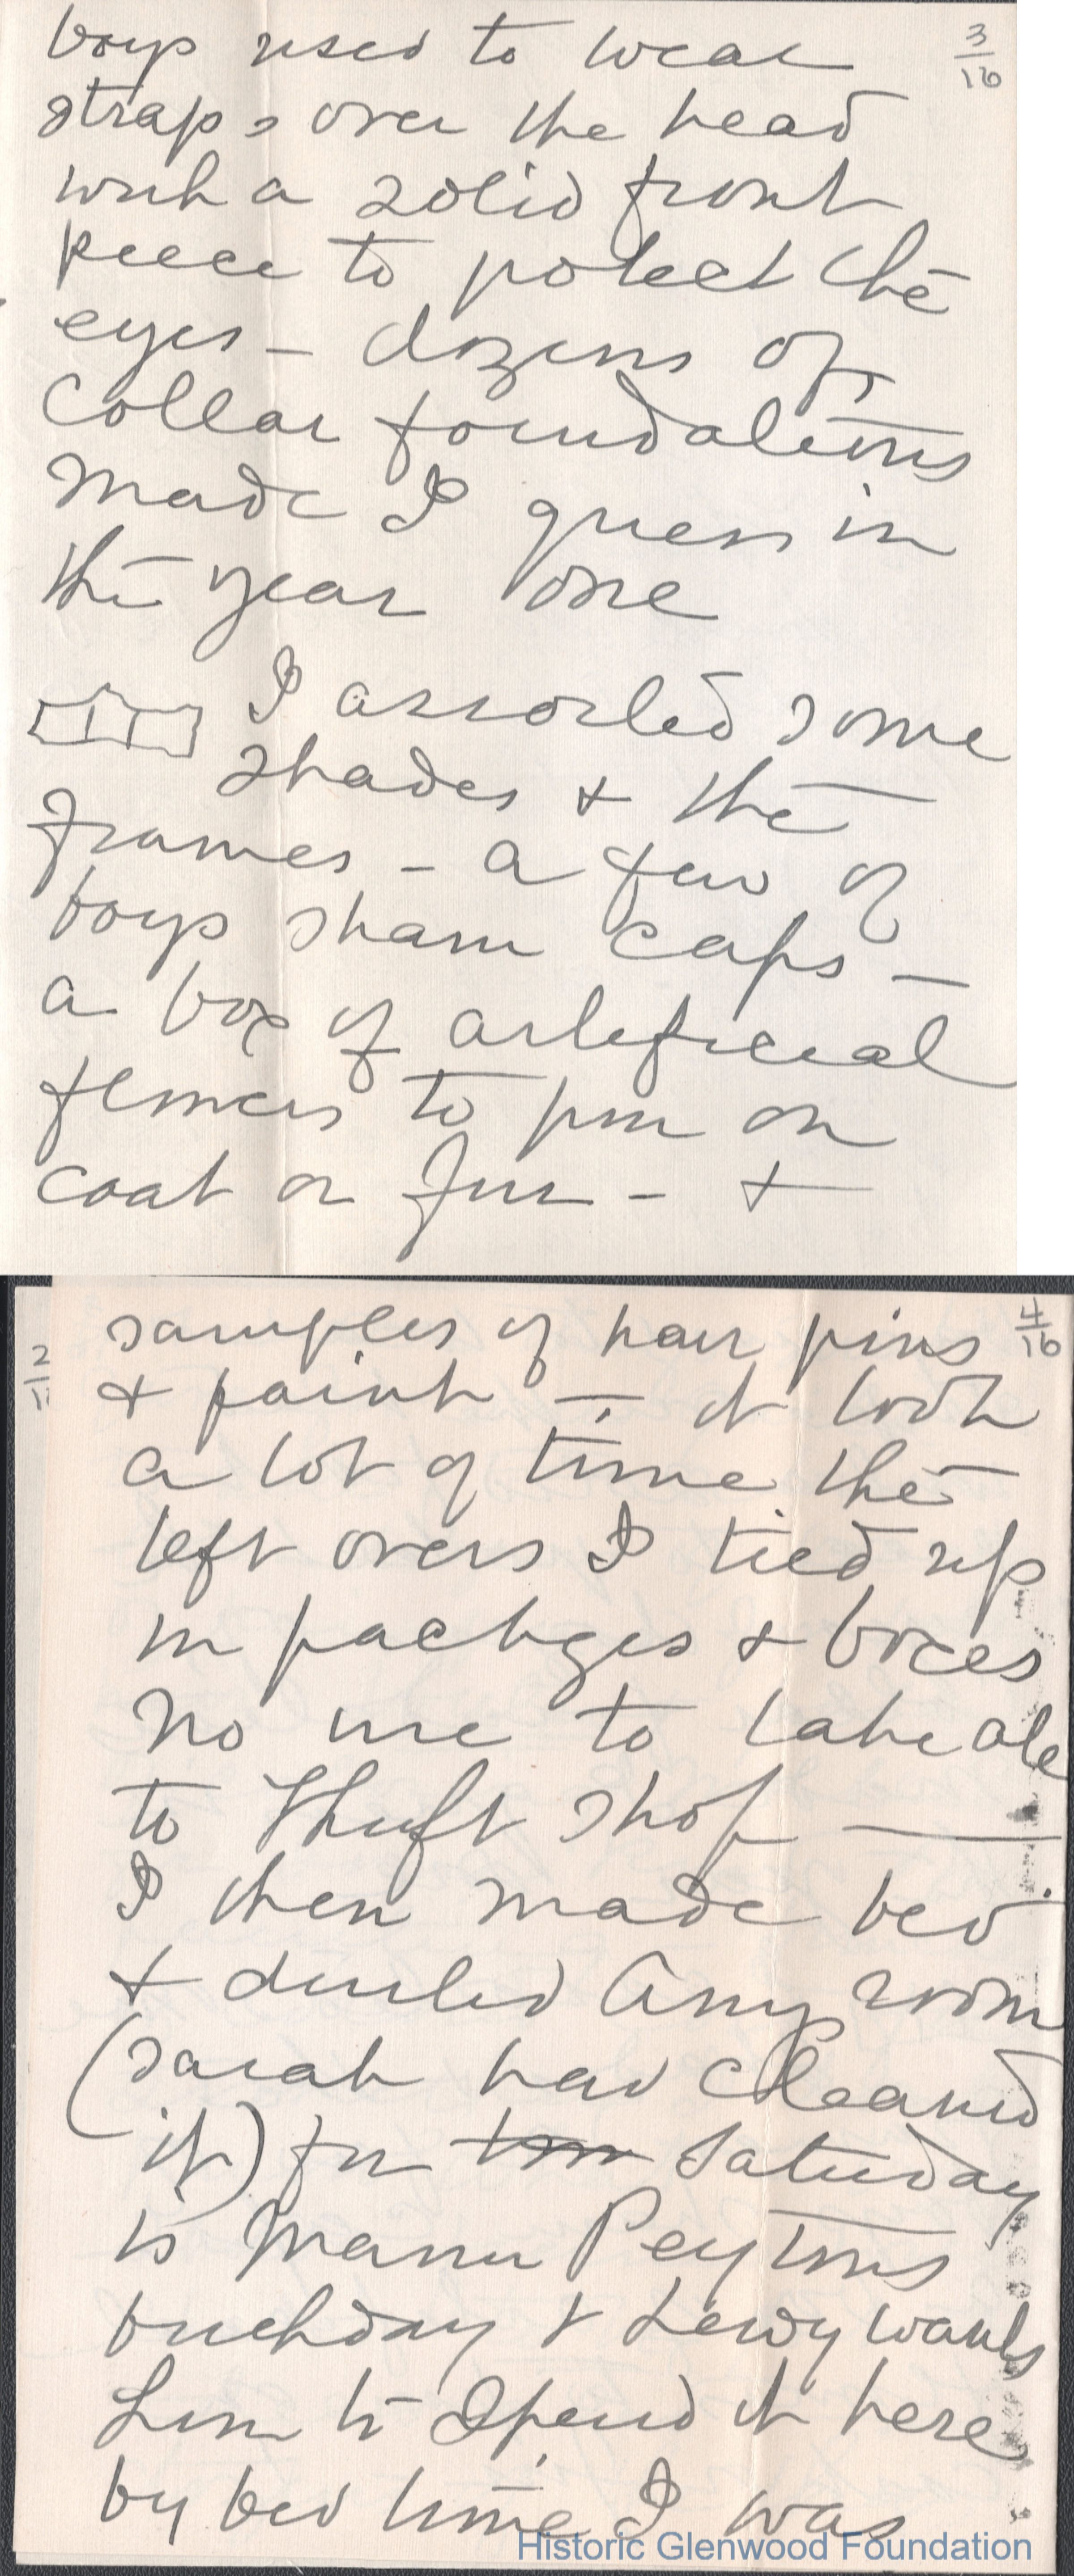 3/16
boys used to wear
straps over the head
with a solid front
peece to potect the
eyes - dozens of
collar foundations
made I guess in
the year one
I assorted some
shades & the
frames - a few of
boys sham caps -
a box of arteficial
flowers to pin on
coat or fur - &
4/16
samples of hair pins
& paint - it took
a lot of time the
left overs I tied up
in packges & boxes
no use to take ole
to Thrift Shop -
I then made bed
& dusted Amy room
(Sarah had cleaned
it) for tom Saturday
is Peytons
birthday & Lewy wants
him to spend it here
by bed time I was
2
Historic Glenwood Foundation